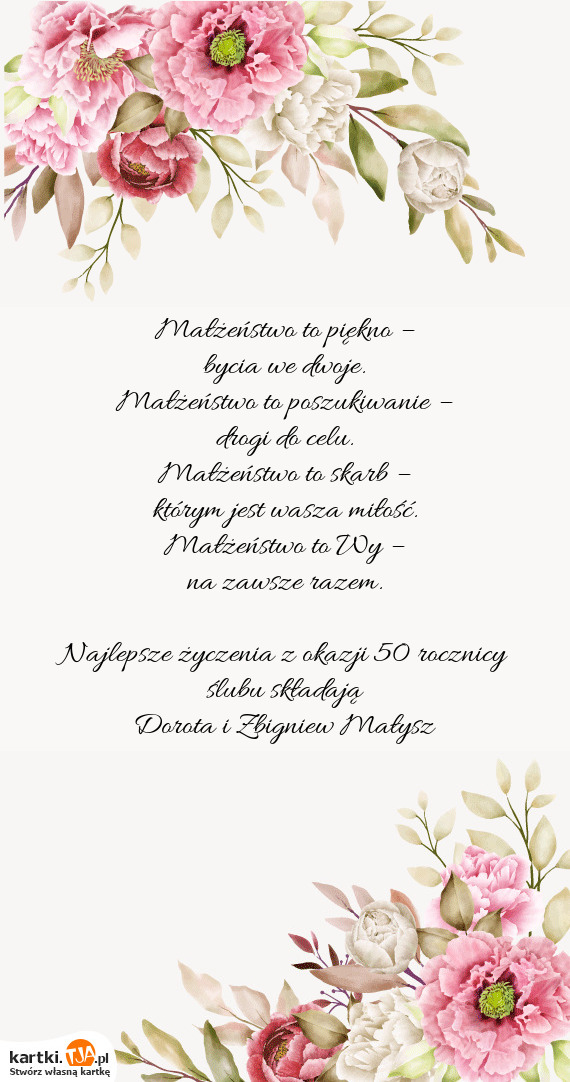 Małżeństwo to piękno –
bycia we dwoje.
Małżeństwo to poszukiwanie –
drogi do celu.
Małżeństwo to skarb –
którym jest wasza miłość.
Małżeństwo to Wy –
na zawsze razem.
Najlepsze życzenia z okazji 50 rocznicy
ślubu składają
Dorota i Zbigniew Małysz
kartki.TJA.pl
Stwórz własną kartkę